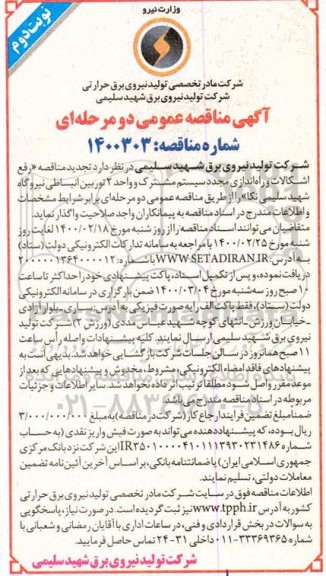 وزارت نیرو
نوبت دوم
شرکت مادر تخصصی تولید نیروی برق حرارتی
شرکت تولید نیروی برق شهید سلیمی
آگهی مناقصه عمومی دو مرحله‌ای
شماره مناقصه: ۱۴۰۰۳۰۳
شرکت تولید نیروی برق شهید سلیمی در نظر دارد تجدید مناقصه «رفع
اشکالات و راه‌اندازی مجدد سیستم مشترک و واحد ۲ توربین انبساطی نیروگاه
شهید سلیمی نکا» را از طریق مناقصه عمومی دو مرحله‌ای برابر شرایط مشخصات
و اطلاعات مندرج در اسناد مناقصه به پیمانکاران واجد صلاحیت واگذار نماید.
متقاضیان می‌توانند اسناد مناقصه را از روز شنبه مورخ ۱۴۰۰/۰۲/۱۸ لغایت روز
شنبه مورخ ۱۴۰۰/۰۲/۲۵ با مراجعه به سامانه تدارکات الکترونیکی دولت (ستاد)
به آدرس: WWW.SETADIRAN.IR با شماره:
دریافت نموده، و پس از تکمیل اسناد، پاکت پیشنهادی خود را حداکثر تا ساعت
۱۰ صبح روز سه‌شنبه مورخ ۱۴۰۰/۰۳/۰۴ ضمن بارگزاری در سامانه الکترونیکی
دولت (ستاد)، فقط پاکت الف را به صورت فیزیکی به آدرس ساری- بلوار آزادی
- خیابان ورزش - انتهای کوچه شهید عباس مددی (ورزش ۲) شرکت تولید
نیروی برق شهید سلیمی ارسال نمایند. کلیه پیشنهادات واصله رأس ساعت
۱۱ صبح همان روز در سالن جلسات شرکت بازگشایی خواهد شد. بدیهی است به
پیشنهادهای فاقد امضاء الکترونیکی، مشروط، مخدوش و پیشنهادهایی که بعد از
موعد مقرر واصل شود مطلقاً ترتیب اثر داده نخواهد شد. سایر اطلاعات و جزئیات
مربوطه در اسناد مناقصه مندرج می‌باشد.
ضمناً مبلغ تضمین فرآیند ارجاع کار (شرکت در مناقصه) به مبلغ ۳/۰۰۰/۰۰۰/۰۰۰
ریال بوده، که پیشنهاددهنده می‌تواند به صورت فیش واریز نقدی (به حساب
شماره این شرکت نزد بانک مرکزی
جمهوری اسلامی ایران) یا ضمانتنامه بانکی، بر اساس آخرین آئین‌نامه تضمین
معاملات دولتی، تسلیم نمایند.
اطلاعات مناقصه فوق در سایت شرکت مادر تخصصی تولید نیروی برق حرارتی
کشور به آدرس www.tpph.ir نیز ثبت گردیده است. در صورت نیاز، پاسخگویی
به سوالات در بخش قراردادی و فنی، در ساعات اداری با آقایان رمضانی و شعبانی با
شماره ۳۳۳۶۹۳۶۵-۰۱۱ داخلی ۳۱-۲۴ تماس حاصل فرمایید.
شرکت تولید نیروی برق شهید سلیمی